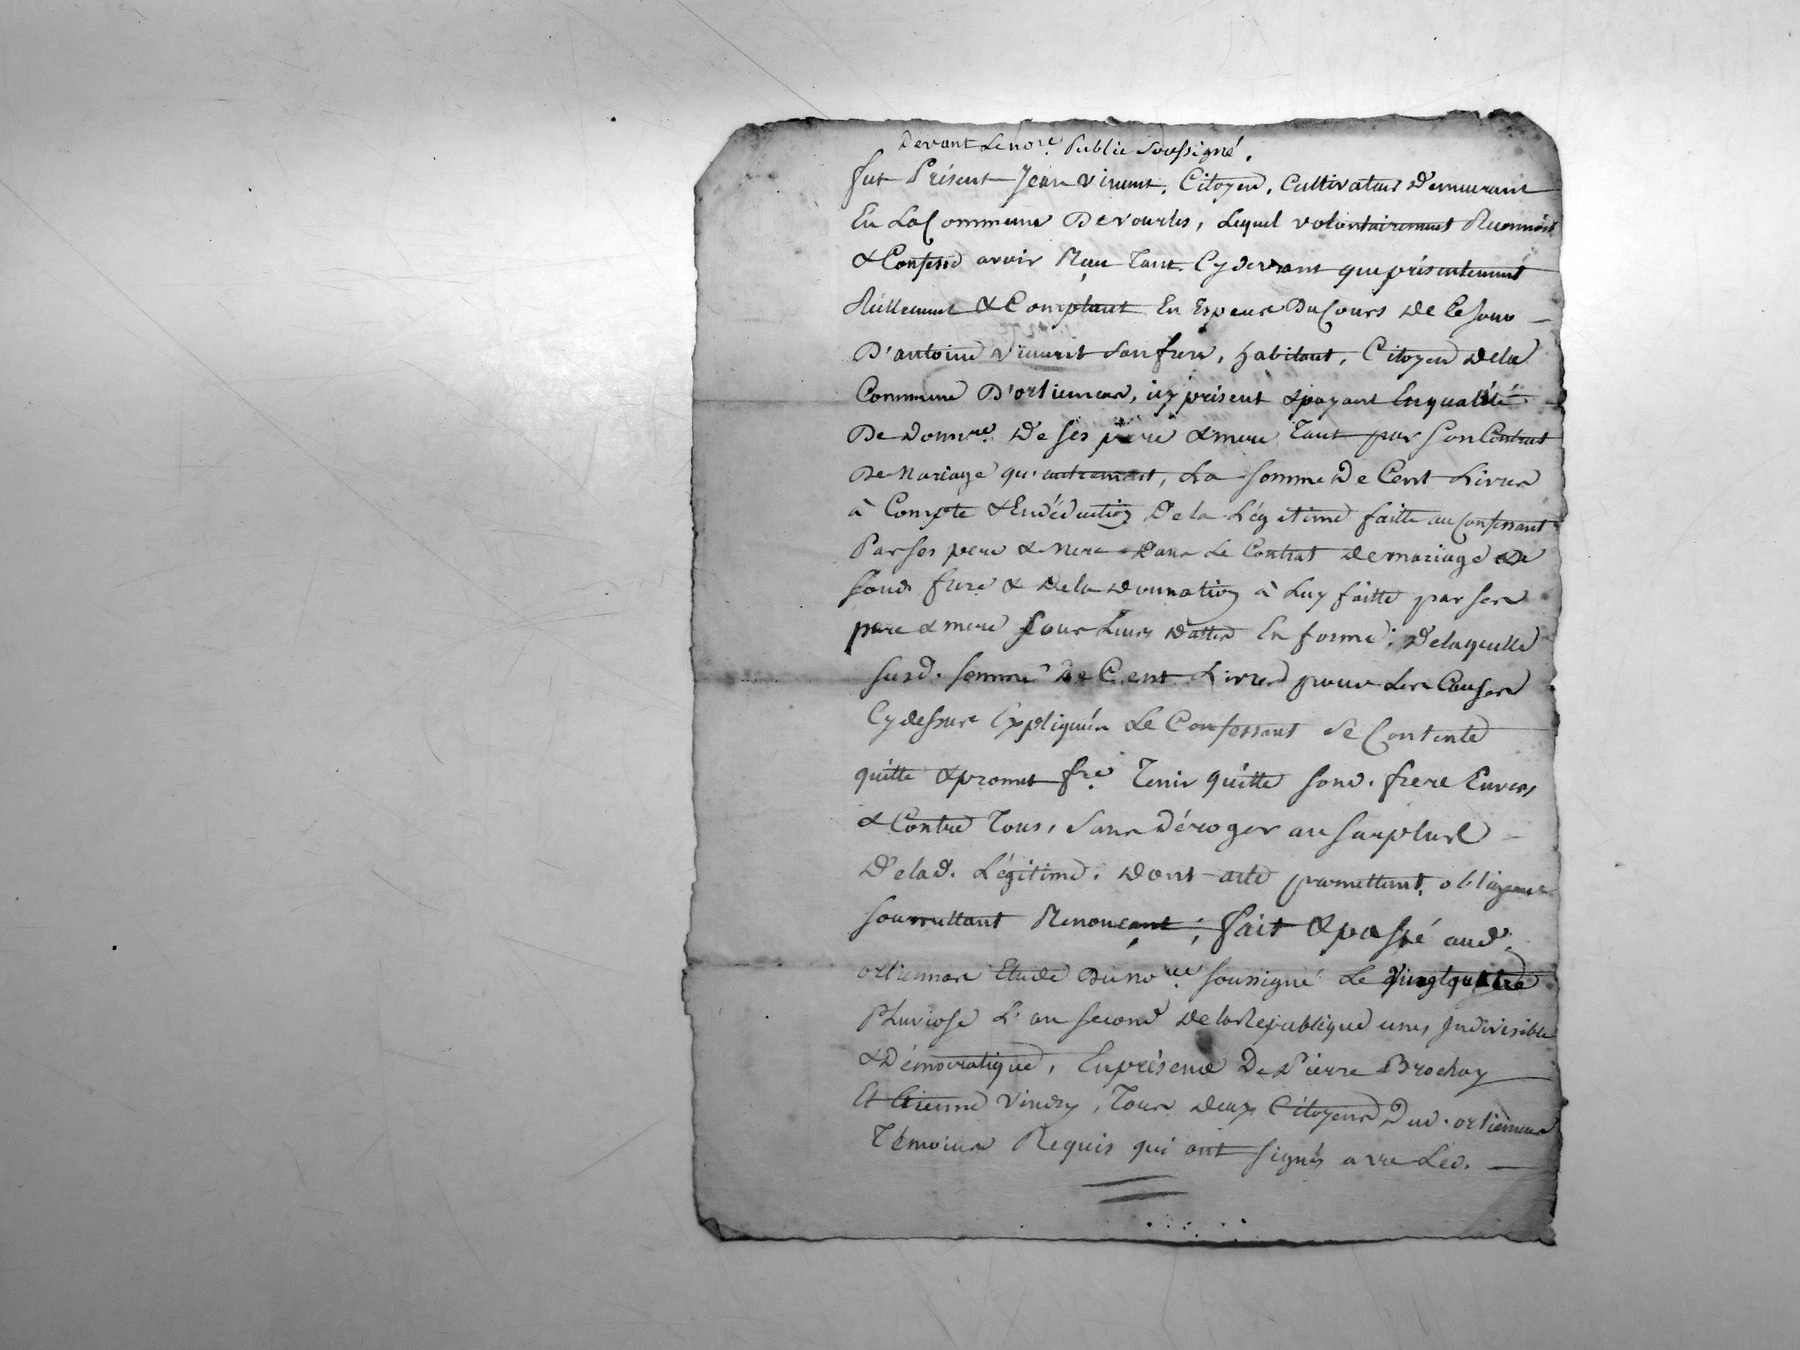 Devant Le no.re Public Soussigné.
fut Présent Jean Vincent, Citoyen, Cultivateur Demeurant
En La Commune De vourles, Lequel volontairement Reconnoit
& Confesse avoir Reçu Tant Cy devant que présentement
Réellement & Comptant En Espece Du Cours de Ce Jour
D'antoine Vincent Son frere, habitant, Citoyen de la
Commune D'orlienas, icy présent & payant En qualité
De Don.re De ses pere & mere Tant par Son Contrat
De Mariage qu'autrement, La Somme De Cent Livres
à Compte & En déduction De la Légitime faitte au Confessant
Par ses pere & mere Dans Le Contrat de mariage de
Sond. frere & De la Donnation à Luy faitte par ses
pere & mere sour Leurs Dattes En forme: De laquelle
Susd. Somme De Cent Livres pour Les Causes
Cy dessus Expliquées Le Confessant Se Contente
quitte & promet f.re Tenir quitte Sond. frere Envers
& Contre Tous, Sans Déroger au Surplus
De lad. Légitime. Dont acte promettant, obligeant
Soumettant Renonçant; fait & passé aud.
orlienas Etude Du no.re Soussigné Le vingt quatre
Pluviose L'an Second De la République une, Indivisible
& Démocratique, En présence De Pierre Brochay
Et Etienne Vindry, Tous deux Citoyens Dud. orlienas
Témoins Requis qui ont Signés avec Led.